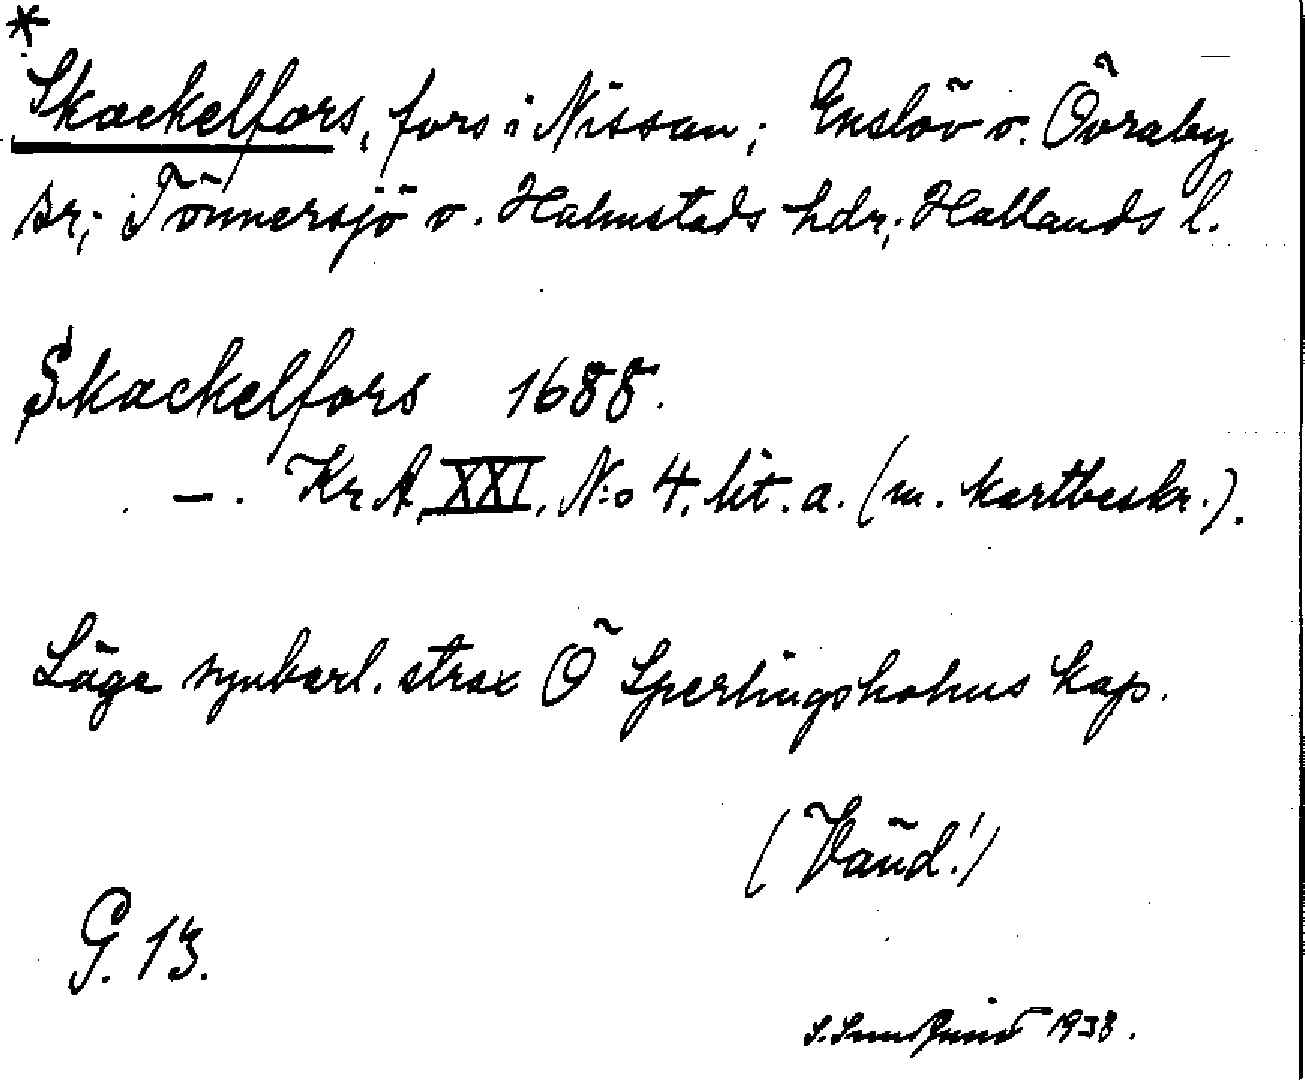 *
Skackelfors, fors i Nissan; Enslöv o. Övraby
sr; Tönnersjö o. Halmstads hdr; Hallands l.
Skackelfors 1688.
—. Kr A, XXI, N:o 4, lit. a. (m. kartbeskr.).
Läge synbarl. strax Ö Sperlingsholms kap.
(Vänd!)
G. 13.
1938.